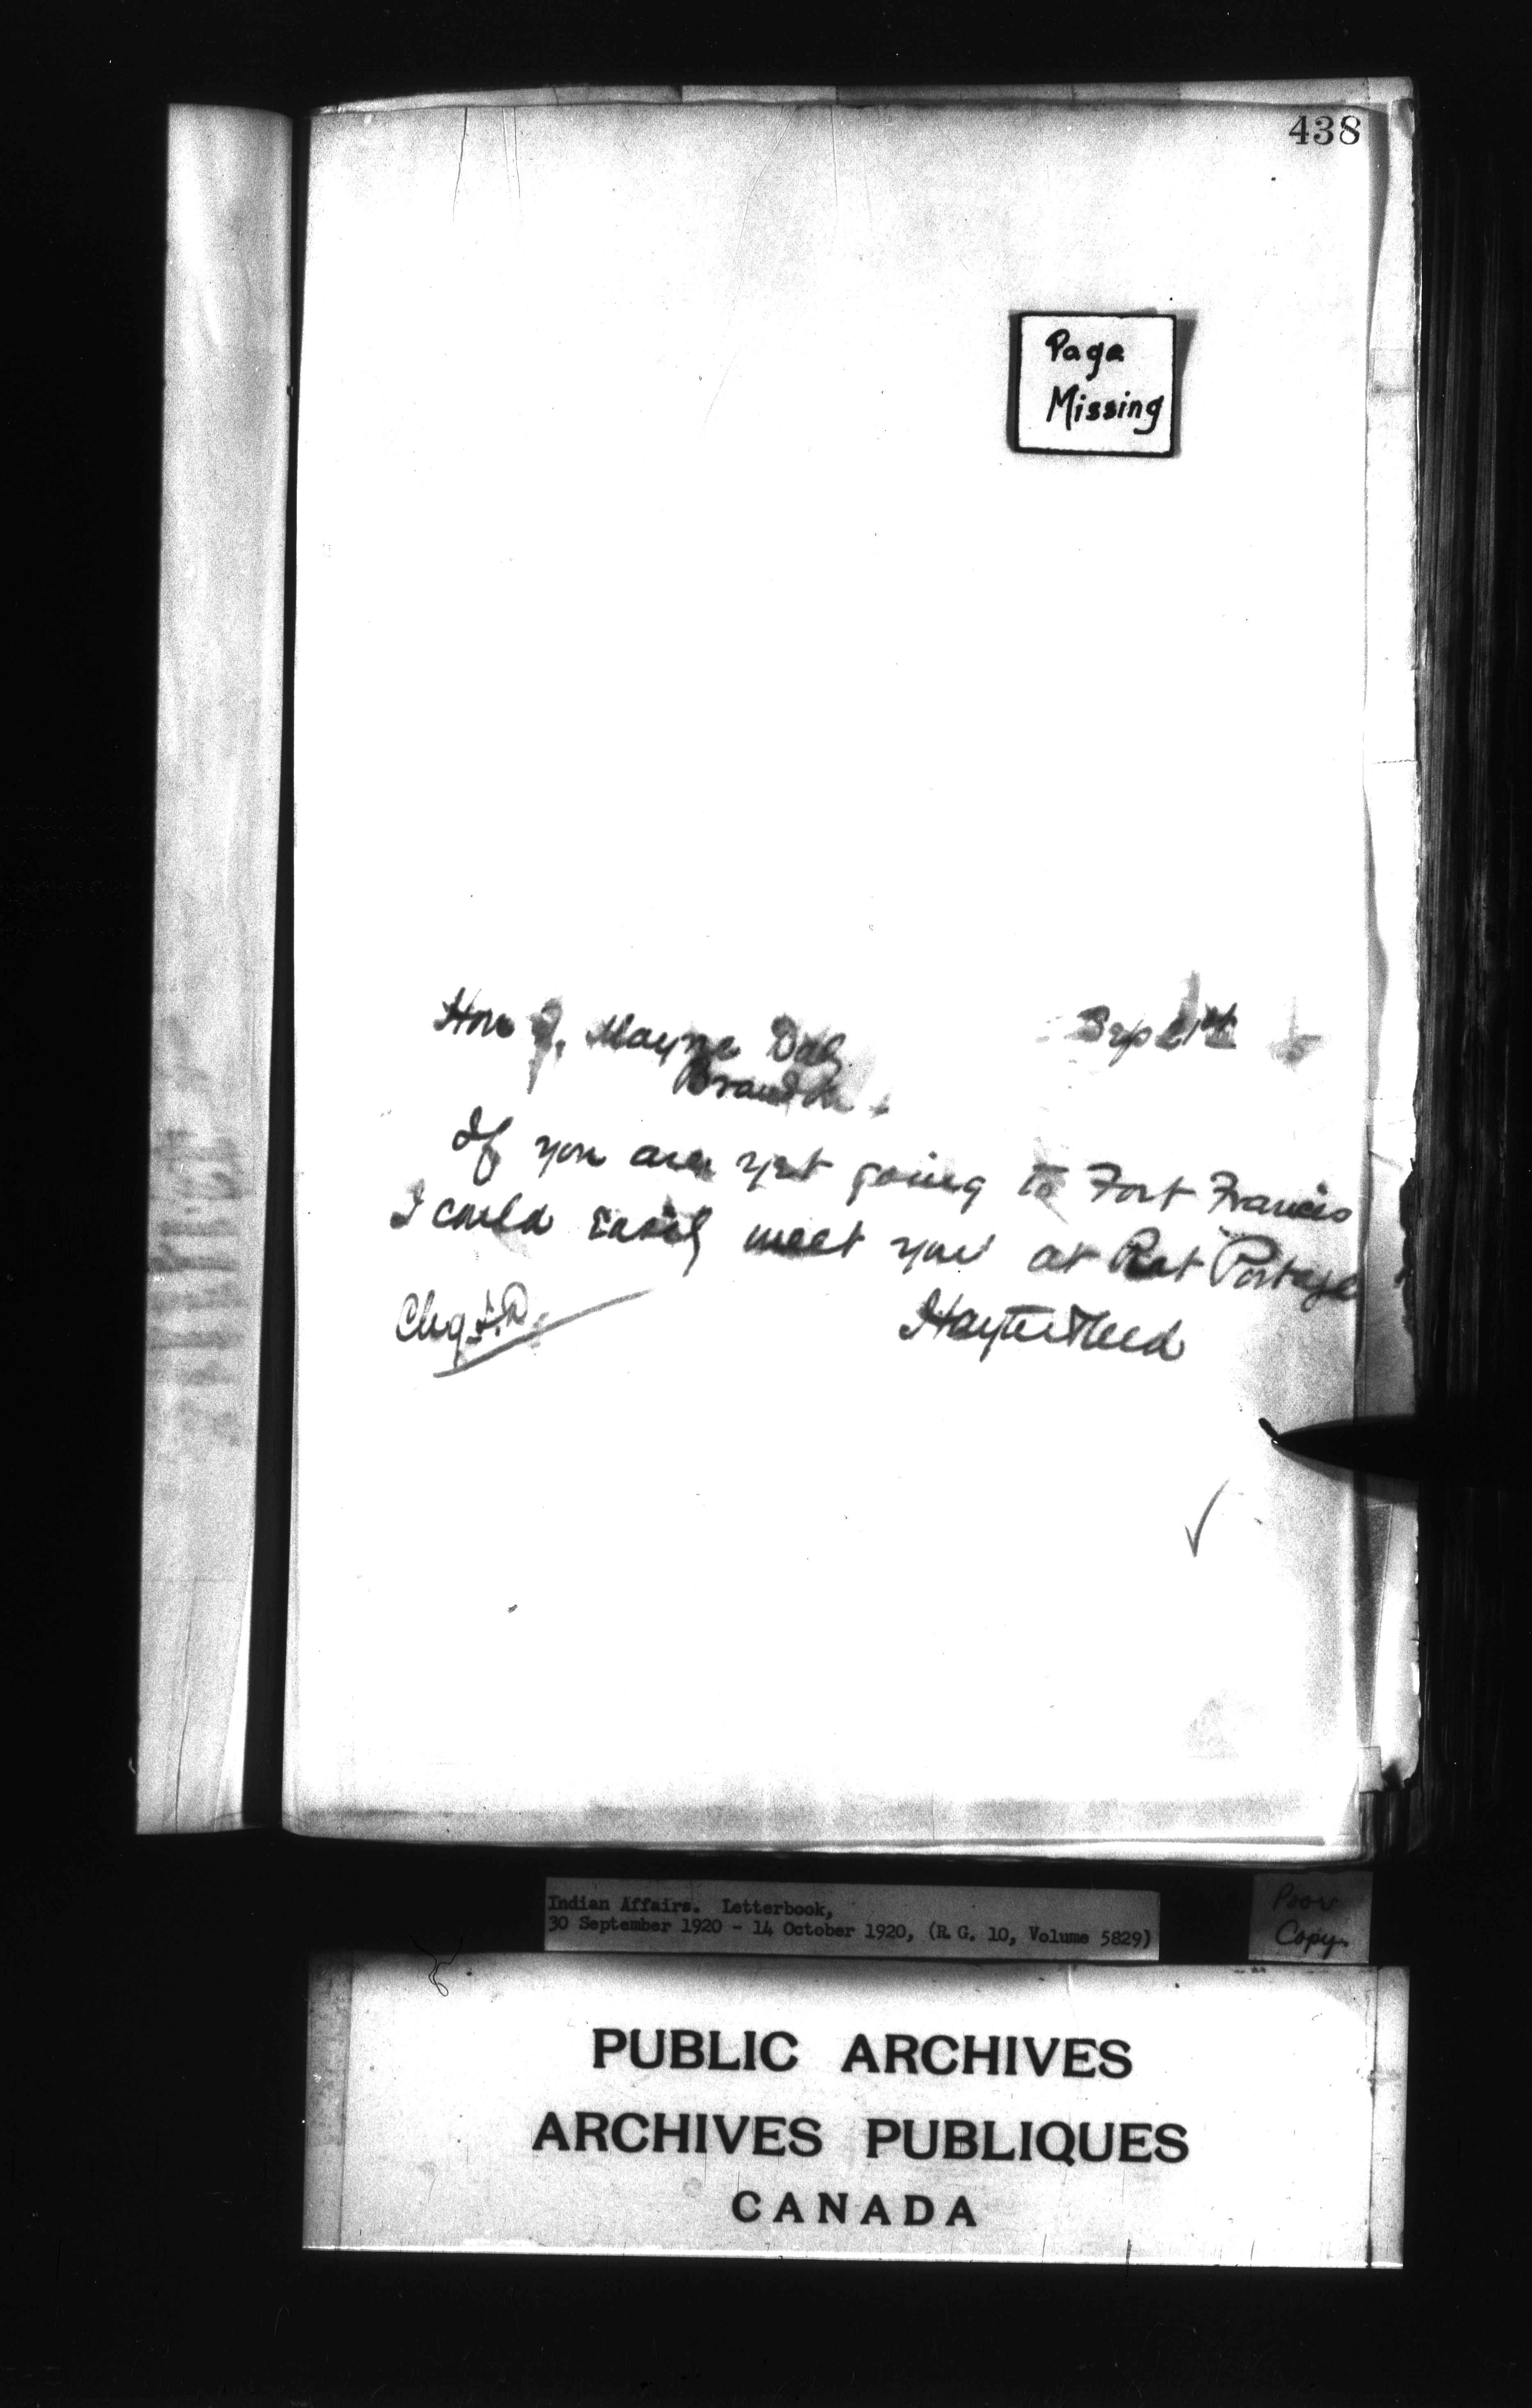 438
Page
Missing
Hon J. Mayne Daly
Sep 21st 5
Brandon.
If you are yet going to Fort Francis
I could easily meet you at Rat Portage
Chg I.D.
Hayter Reed
Indian Affairs. Letterbook,
30 September 1920 - 14 October 1920, (R.G. 10, Volume 5829)
Poor
Copy
PUBLIC ARCHIVES
ARCHIVES PUBLIQUES
CANADA